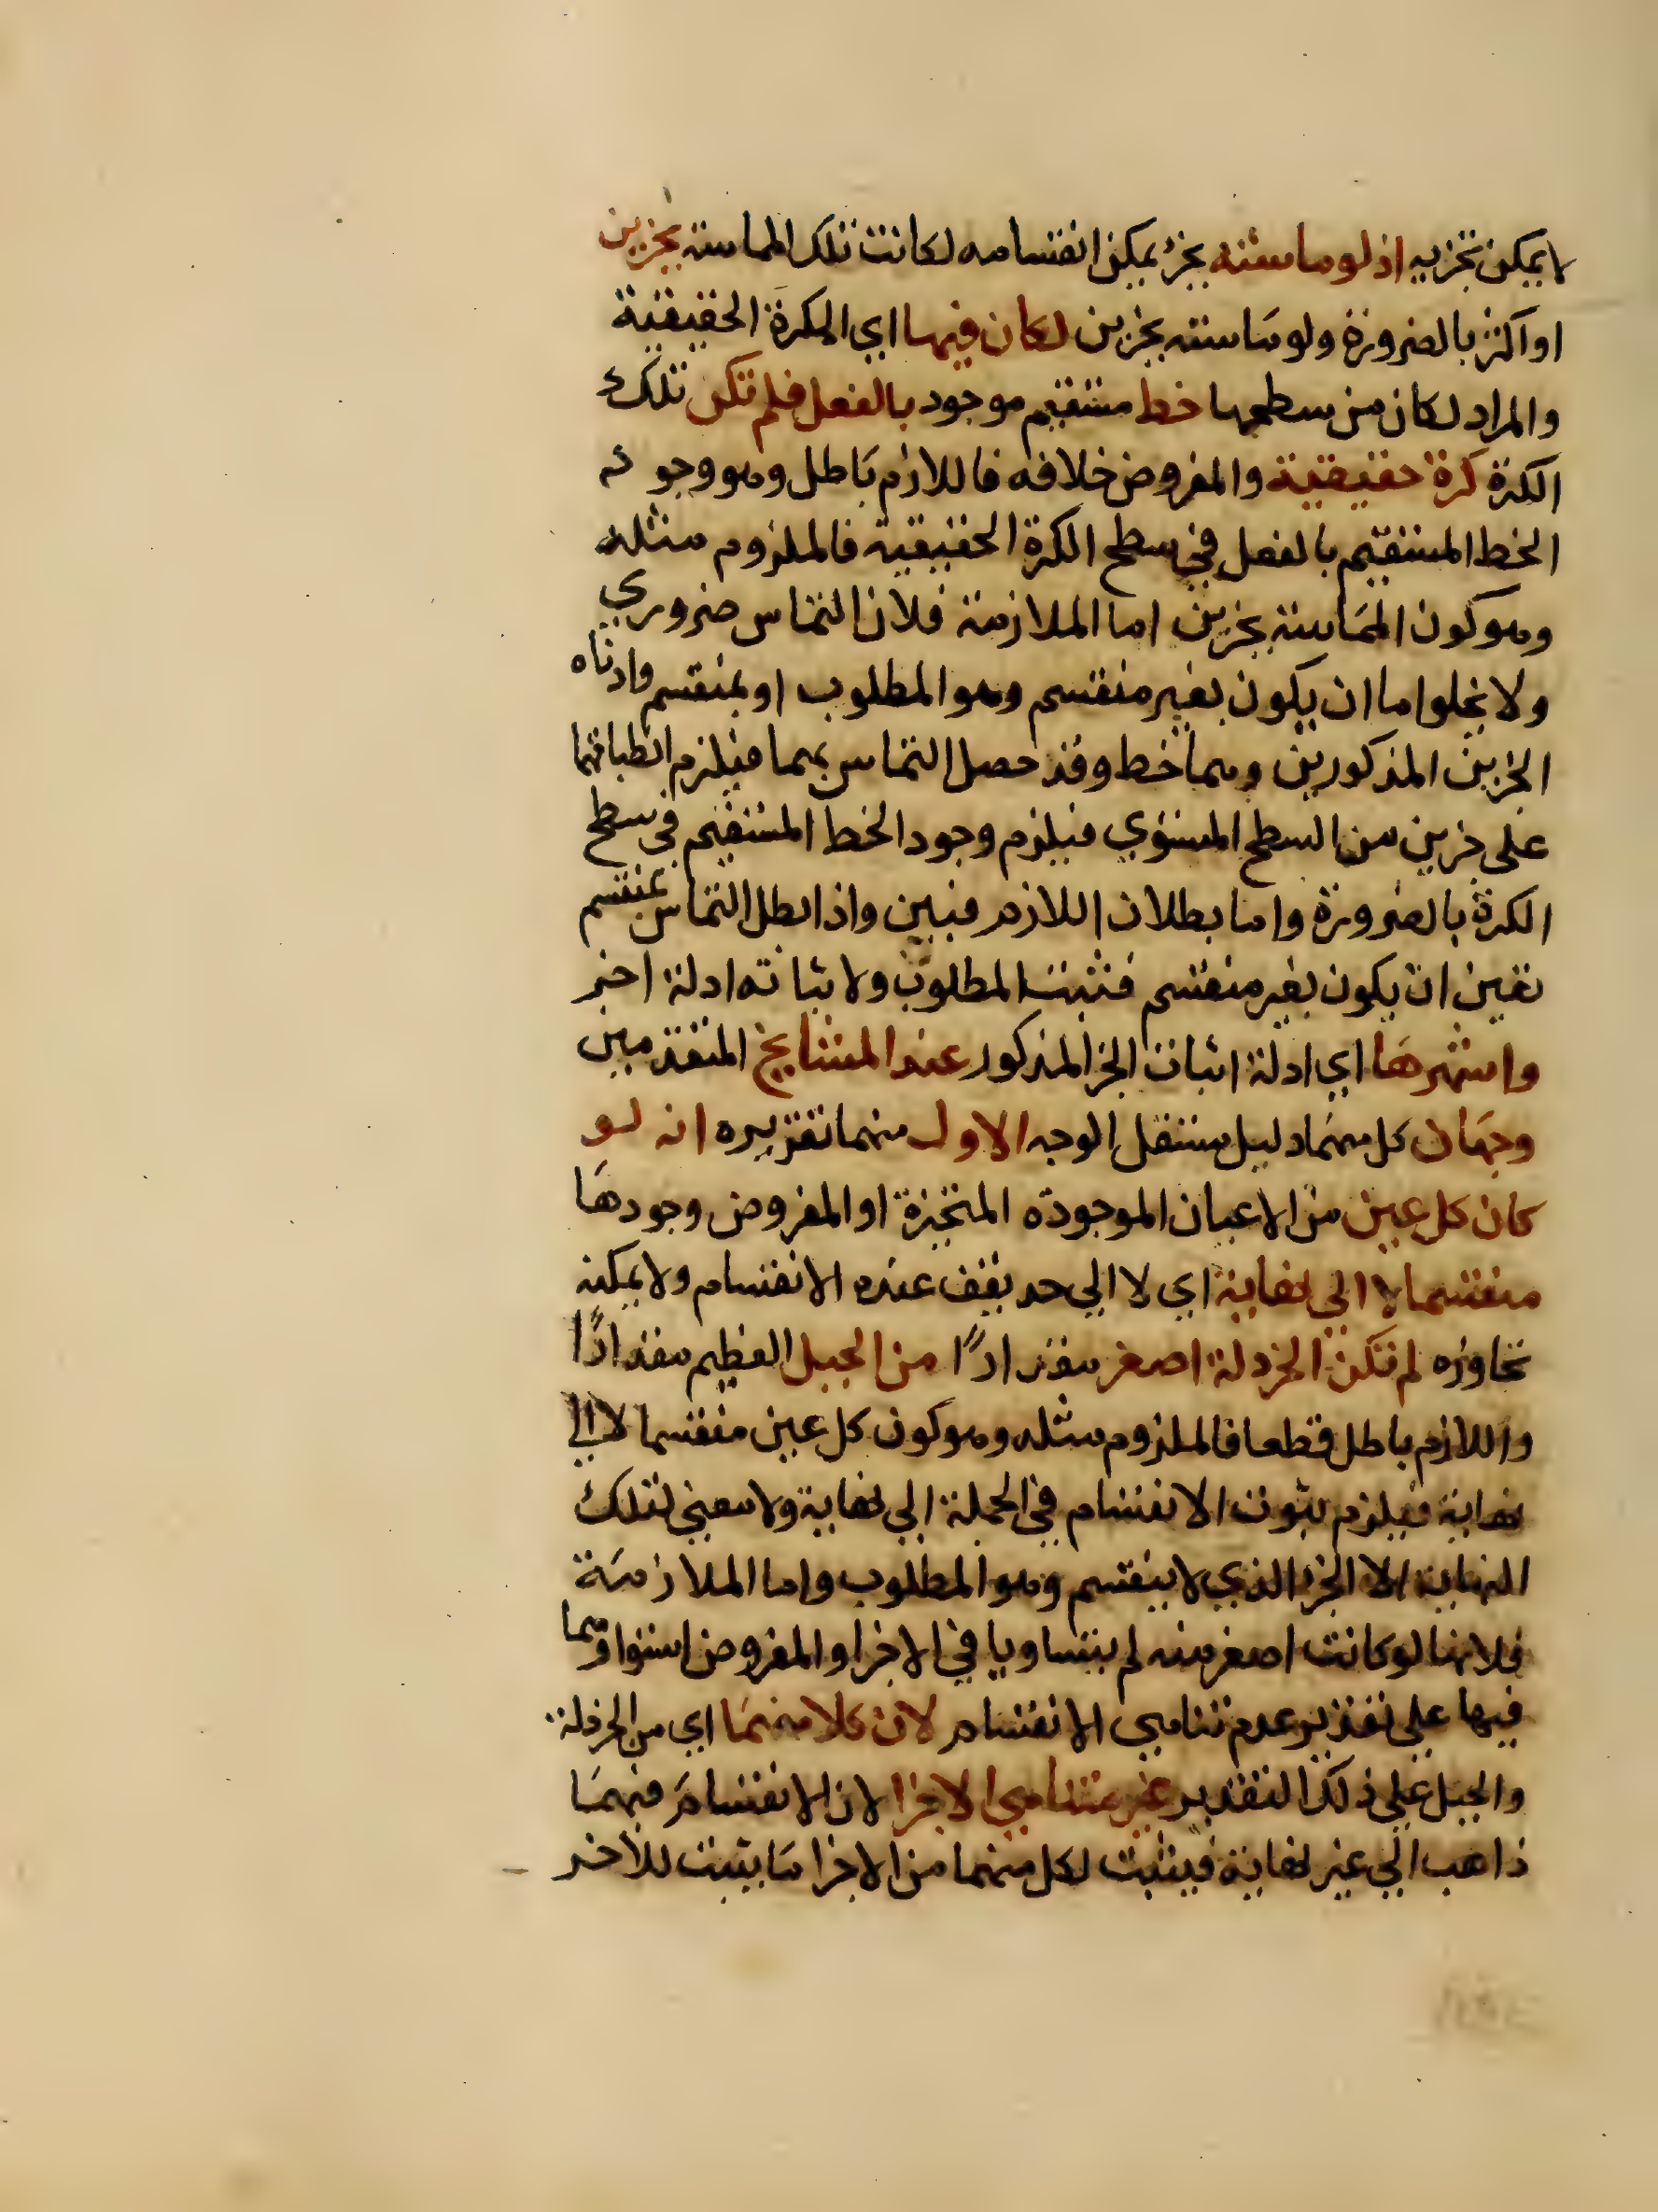 لا يمكن تجزيه اذ لو ماسته بجزء يمكن انقسامه لكانت تلك المماسة بجزين
او اكثر بالضرورة ولو ماسته بجزين لكان فيها اي الكرة الحقيقية
والمراد لكان من سطحها خط مستقيم موجود بالفعل فلم تكن تلك
الكرة كرة حقيقية والمفروض خلافه فاللازم باطل وهو وجود
الخط المستقيم بالفعل في سطح الكرة الحقيقية فالملزوم مثله
وهو كون المماسة بجزين اما الملازمة فلان التماس ضروري
ولا يخلوا ما ان يكون بغير منقسم وهو المطلوب او بمنقسم وادناه
الجزين المذكورين وهما خط وقد حصل التماس بهما فيلزم انطباقهما
على جزين من السطح المستوي فيلزم وجود الخط المستقيم في سطح
الكرة بالضرورة واما بطلان اللازم فبين واذا بطل التماس بمنقسم
تعين ان يكون بغير منقسم فثبت المطلوب ولاثباته ادلة اخر
واشهرها اي ادلة اثبات الجزا المذكور عند المشايخ المتقدمين
وجهان كل منهما دليل مستقل الوجه الاول منهما تقريره انه لو
كان كل عين من الاعيان الموجودة المتحيزة او المفروض وجودها
منقسما لا الي نهاية اي لا الي حد يقف عنده الانقسام ولا يمكنه
تجاوزه لم تكن الخردلة اصغر مقدارًا من الجبل العظيم مقدارًا
واللازم باطل قطعا فالملزوم مثله وهو كون كل عين منقسما لا الي
نهاية فيلزم ثبوت الانقسام في الجملة الي نهاية ولا معني لتلك
النهاية الا الجزا الذي لا ينقسم وهو المطلوب واما الملازمة
فلانها لو كانت اصغر منه لم يتساويا في الاجزا والمفروض استواوهما
فيها علي تقدير عدم تناهي الانقسام لان كلا منهما اي من الخردلة
والجبل علي ذلك التقدير غير متناهي الاجزا لان الانقسام فيهما
ذاهب الي غير نهاية فيثبت لكل منهما من الاجزا ما يثبت للاخر